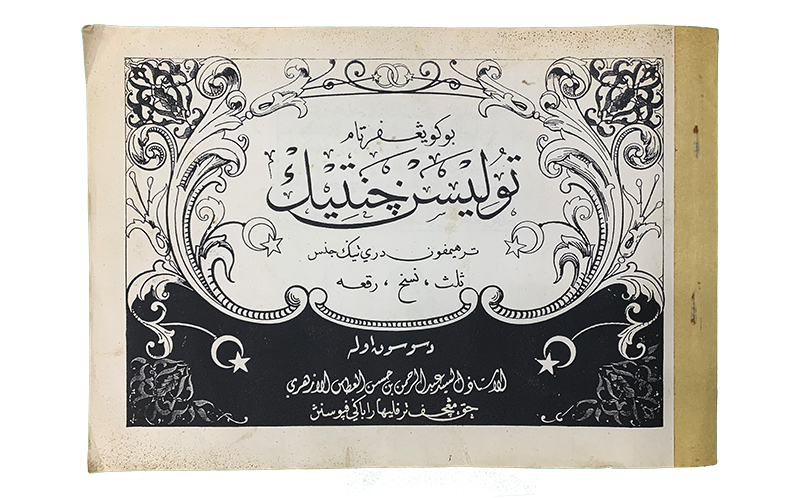 بوكو يڠ فرتام
توليسن چنتيك
ترهيمفون دري تيݢ جنس
ثلث ، نسخ ، رقعه
دسوسون اوله
الأستاذ السيد عبد الرحمن بن حسن العطاس الازهري
حق مڠچف ترفليهارا باݢي ڤپوسنن